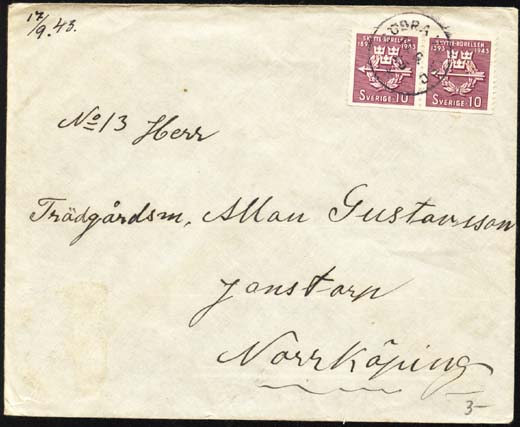 17/9.43.
SKYTTE-RÖRELSEN
1893 1943
SVERIGE 10
SKYTTE-RÖRELSEN
1893 1943
SVERIGE 10
No 13 Herr
Trädgårdsm, Allan Gustavsson
Jonstorp
Norrköping
3-